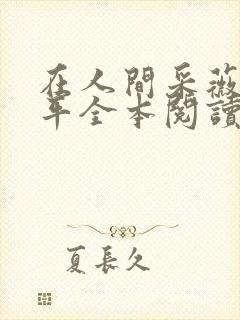 在人間采薇
年全本閱讀
夏長久